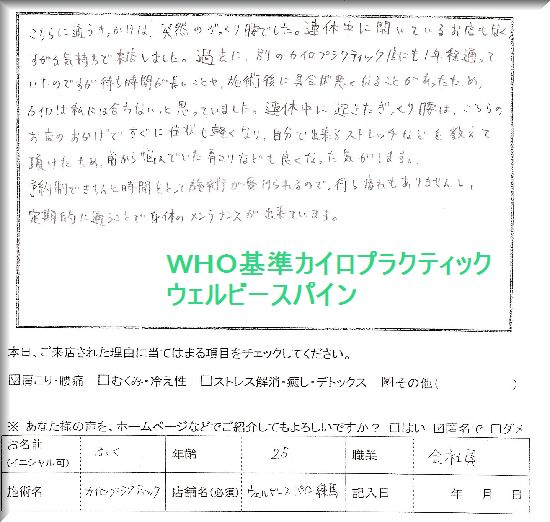 こちらに通うきっかけは、突然のぎっくり腰でした。連休中に開いているお店もなく
すがる気持ちで来店しました。過去に、別のカイロプラクティック店にも1年程通って
いたのですが待ち時間が長いことや、施術後に具合が悪くなることがあったため、
カイロは私には合わないと思っていました。連休中に起きたぎっくり腰は、こちらの
お店のおかげですぐに症状も軽くなり、自分で出来るストレッチなどを教えて
頂けたため、前から悩んでいた肩こりなども良くなった気がします。
予約制できちんと時間をとって施術が受けられるので、待ち疲れもありませんし、
定期的に通うことで身体のメンテナンスが出来ています。
WHO基準カイロプラクティック
ウェルビースパイン
本日、ご来店された理由に当てはまる項目をチェックしてください。
☑肩こり・腰痛 □むくみ・冷え性 □ストレス解消・癒し・デトックス ☑その他( )
※ あなた様の声を、ホームページなどでご紹介してもよろしいですか? □はい ☑匿名で □ダメ
お名前 年齢 25 職業 会社員
(イニシャル可)
施術名 カイロプラクティック 店舗名(必須) ウェルビースパイン 練馬 記入日 年 月 日